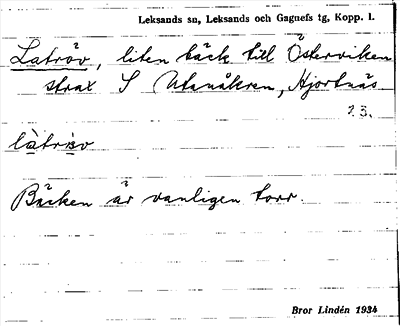 Leksands sn, Leksands och Gagnefs tg, Kopp. l.
Latröv, liten bäck till Österviken
strax S Utanåkren, Hjortnäs
23.
Bäcken är vanligen torr.
Bror Lindén 1934